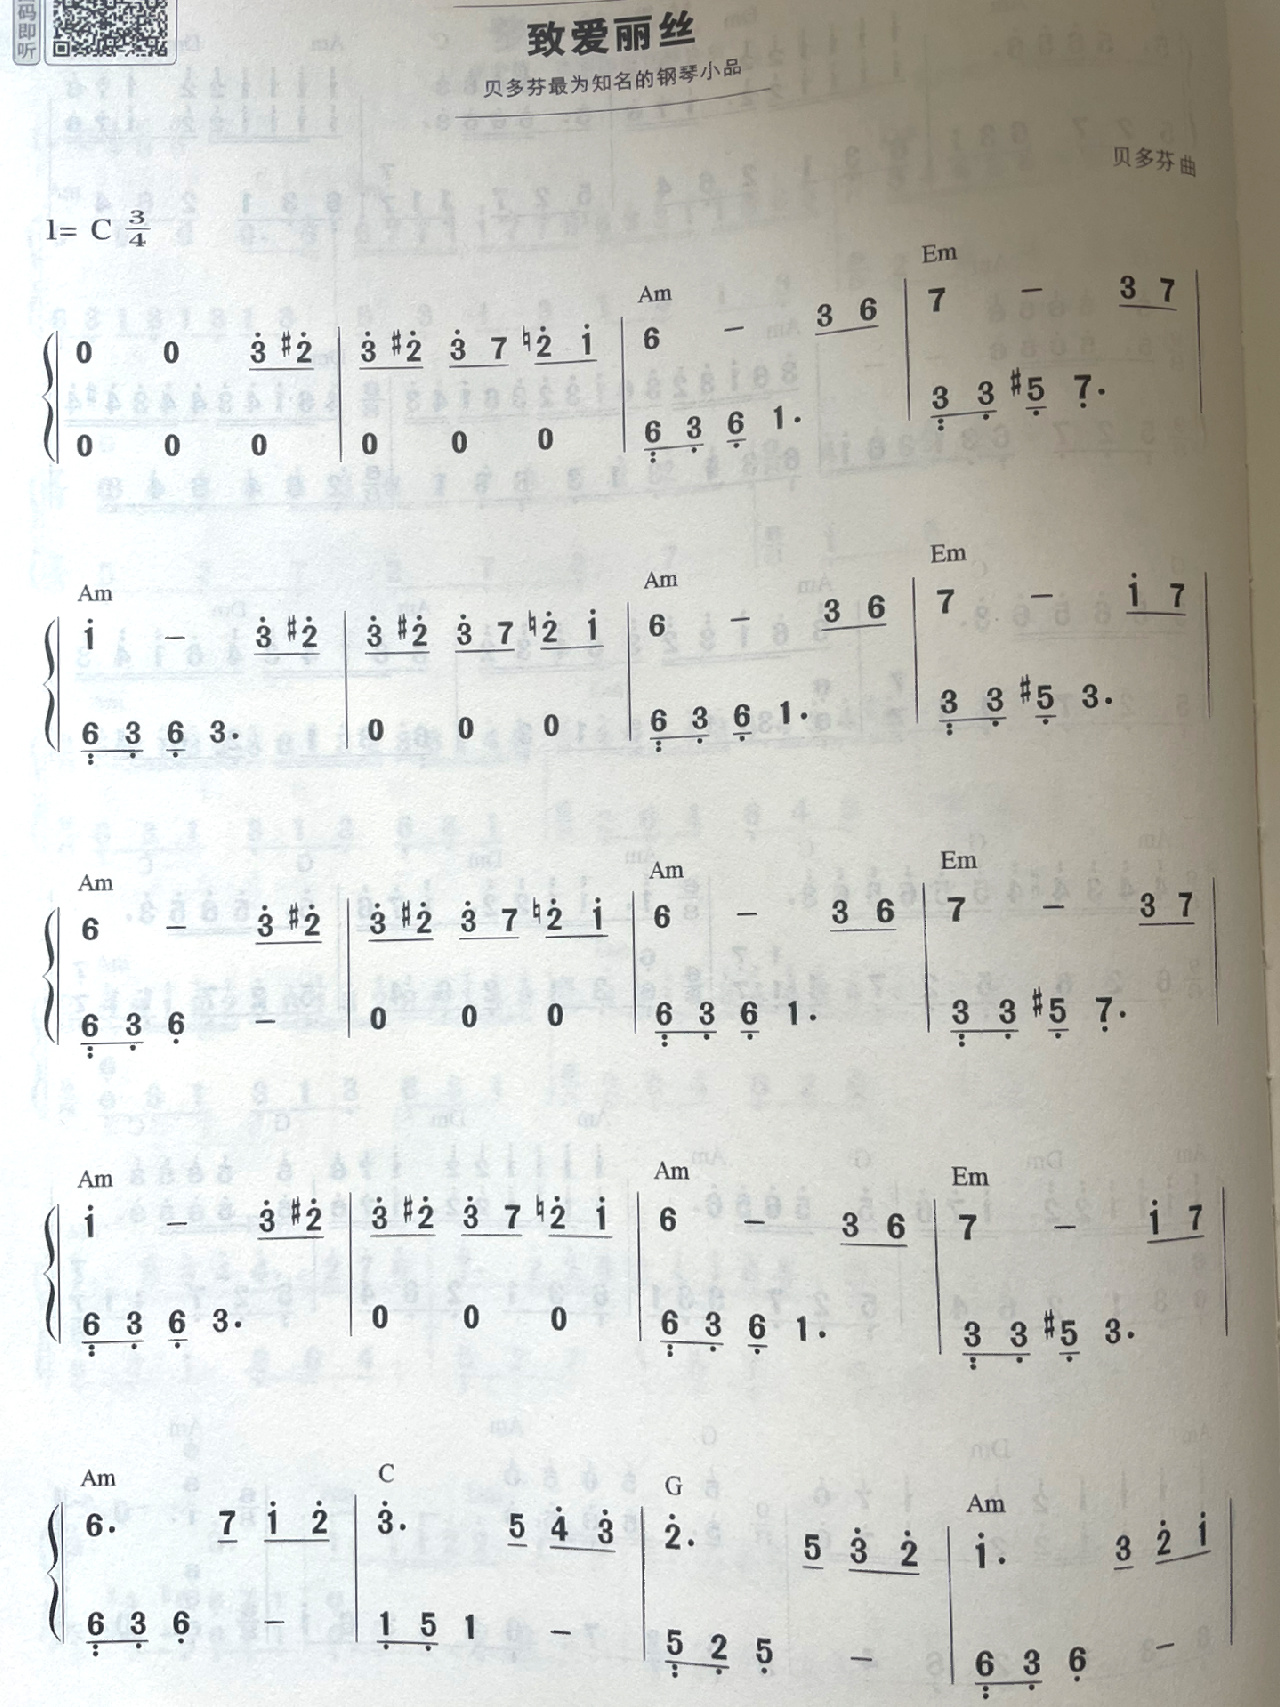 码即听
致爱丽丝
贝多芬最为知名的钢琴小品
贝多芬 曲
1= C 3/4
Am Em
0 0 3̇ #2̇ | 3̇ #2̇ 3̇ 7 ♮2̇ 1̇ | 6 – 3 6 | 7 – 3 7
0 0 0 | 0 0 0 | 6 3 6 1. | 3 3 #5 7.
Am Am Em
1̇ – 3̇ #2̇ | 3̇ #2̇ 3̇ 7 ♮2̇ 1̇ | 6 – 3 6 | 7 – 1̇ 7
6 3 6 3. | 0 0 0 | 6 3 6 1. | 3 3 #5 3.
Am Am Em
6 – 3̇ #2̇ | 3̇ #2̇ 3̇ 7 ♮2̇ 1̇ | 6 – 3 6 | 7 – 3 7
6 3 6 – | 0 0 0 | 6 3 6 1. | 3 3 #5 7.
Am Am Em
1̇ – 3̇ #2̇ | 3̇ #2̇ 3̇ 7 ♮2̇ 1̇ | 6 – 3 6 | 7 – 1̇ 7
6 3 6 3. | 0 0 0 | 6 3 6 1. | 3 3 #5 3.
Am C G Am
6. 7 1̇ 2̇ | 3̇. 5 4̇ 3̇ | 2̇. 5 3̇ 2̇ | 1̇. 3 2̇ 1̇
6 3 6 – | 1 5 1 – | 5 2 5 – | 6 3 6 –